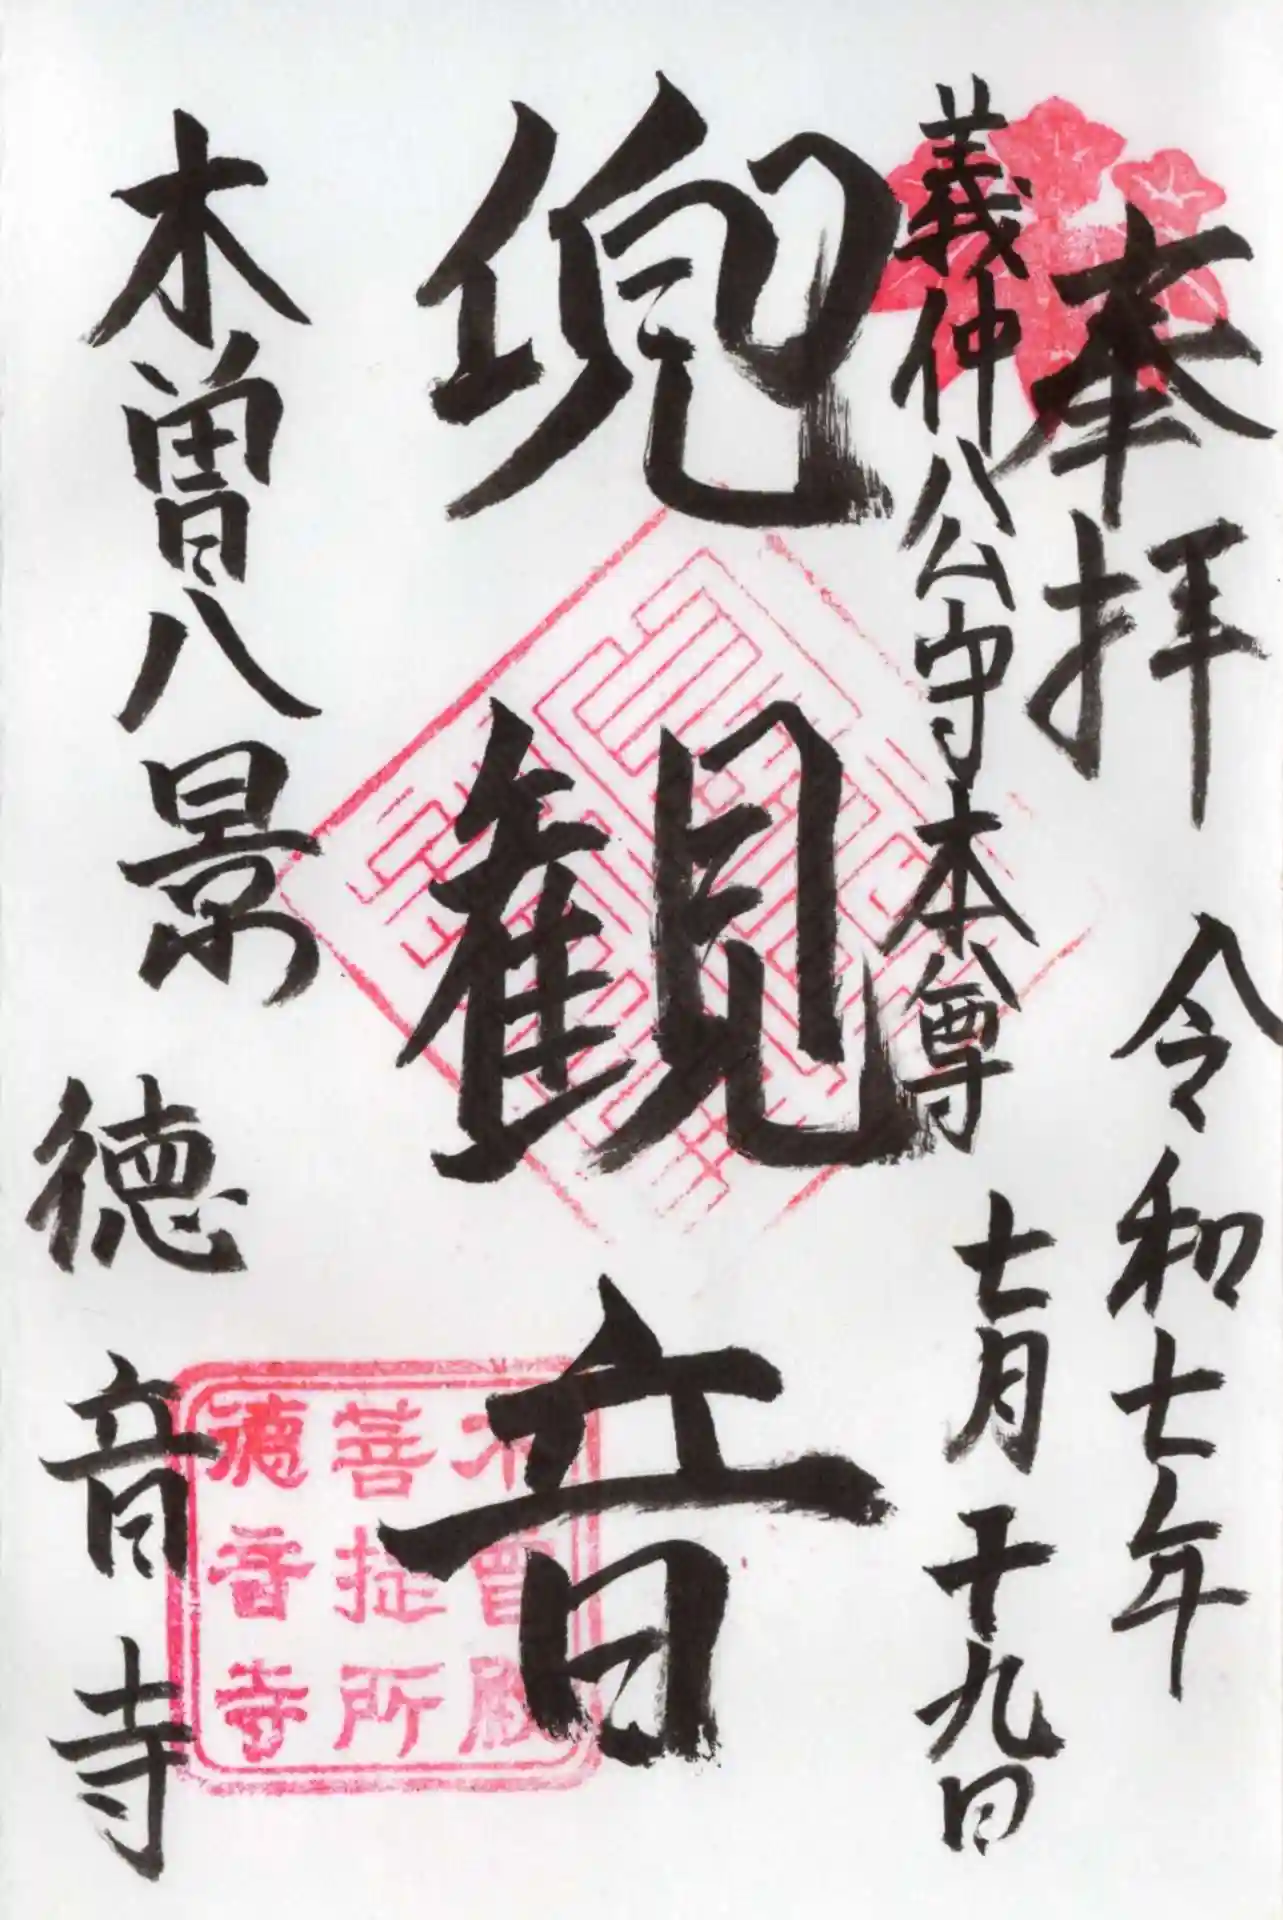 奉拝
令和七年
義仲公守本尊
七月十九日
兜観音
木曽八景
徳音寺
木曾殿
菩提所
徳音寺